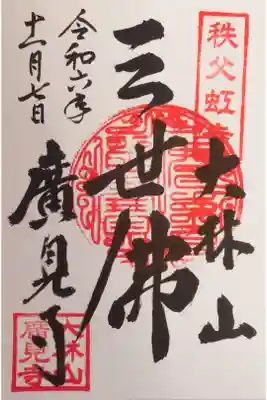 秩父虹寺
大林山
三世佛
廣見寺
令和六年
十一月七日
大林山
廣見寺